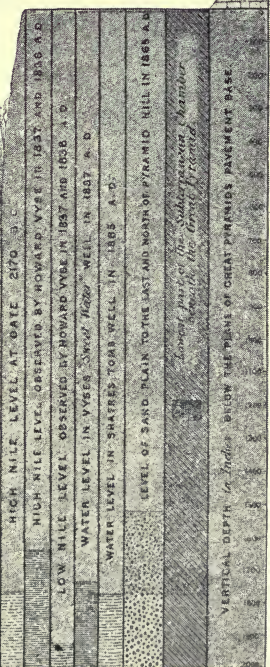 HIGH NILE LEVEL AT DATE 2170 B.C.
HIGH NILE LEVEL OBSERVED BY HOWARD VYSE IN 1837 AND 1838 A.D.
LOW NILE LEVEL OBSERVED BY HOWARD VYSE IN 1837 AND 1838 A.D.
WATER LEVEL IN VYSE'S "Sweet Water" WELL IN 1837 A.D.
WATER LEVEL IN SHAFRES TOMB-WELL IN 1865 A.D.
LEVEL OF SAND PLAIN TO THE EAST AND NORTH OF PYRAMID HILL IN 1865 A.D.
Lowest part of the Subterranean Chamber
beneath the Great Pyramid
VERTICAL DEPTH in Inches BELOW THE PLANE OF GREAT PYRAMID'S PAVEMENT BASE